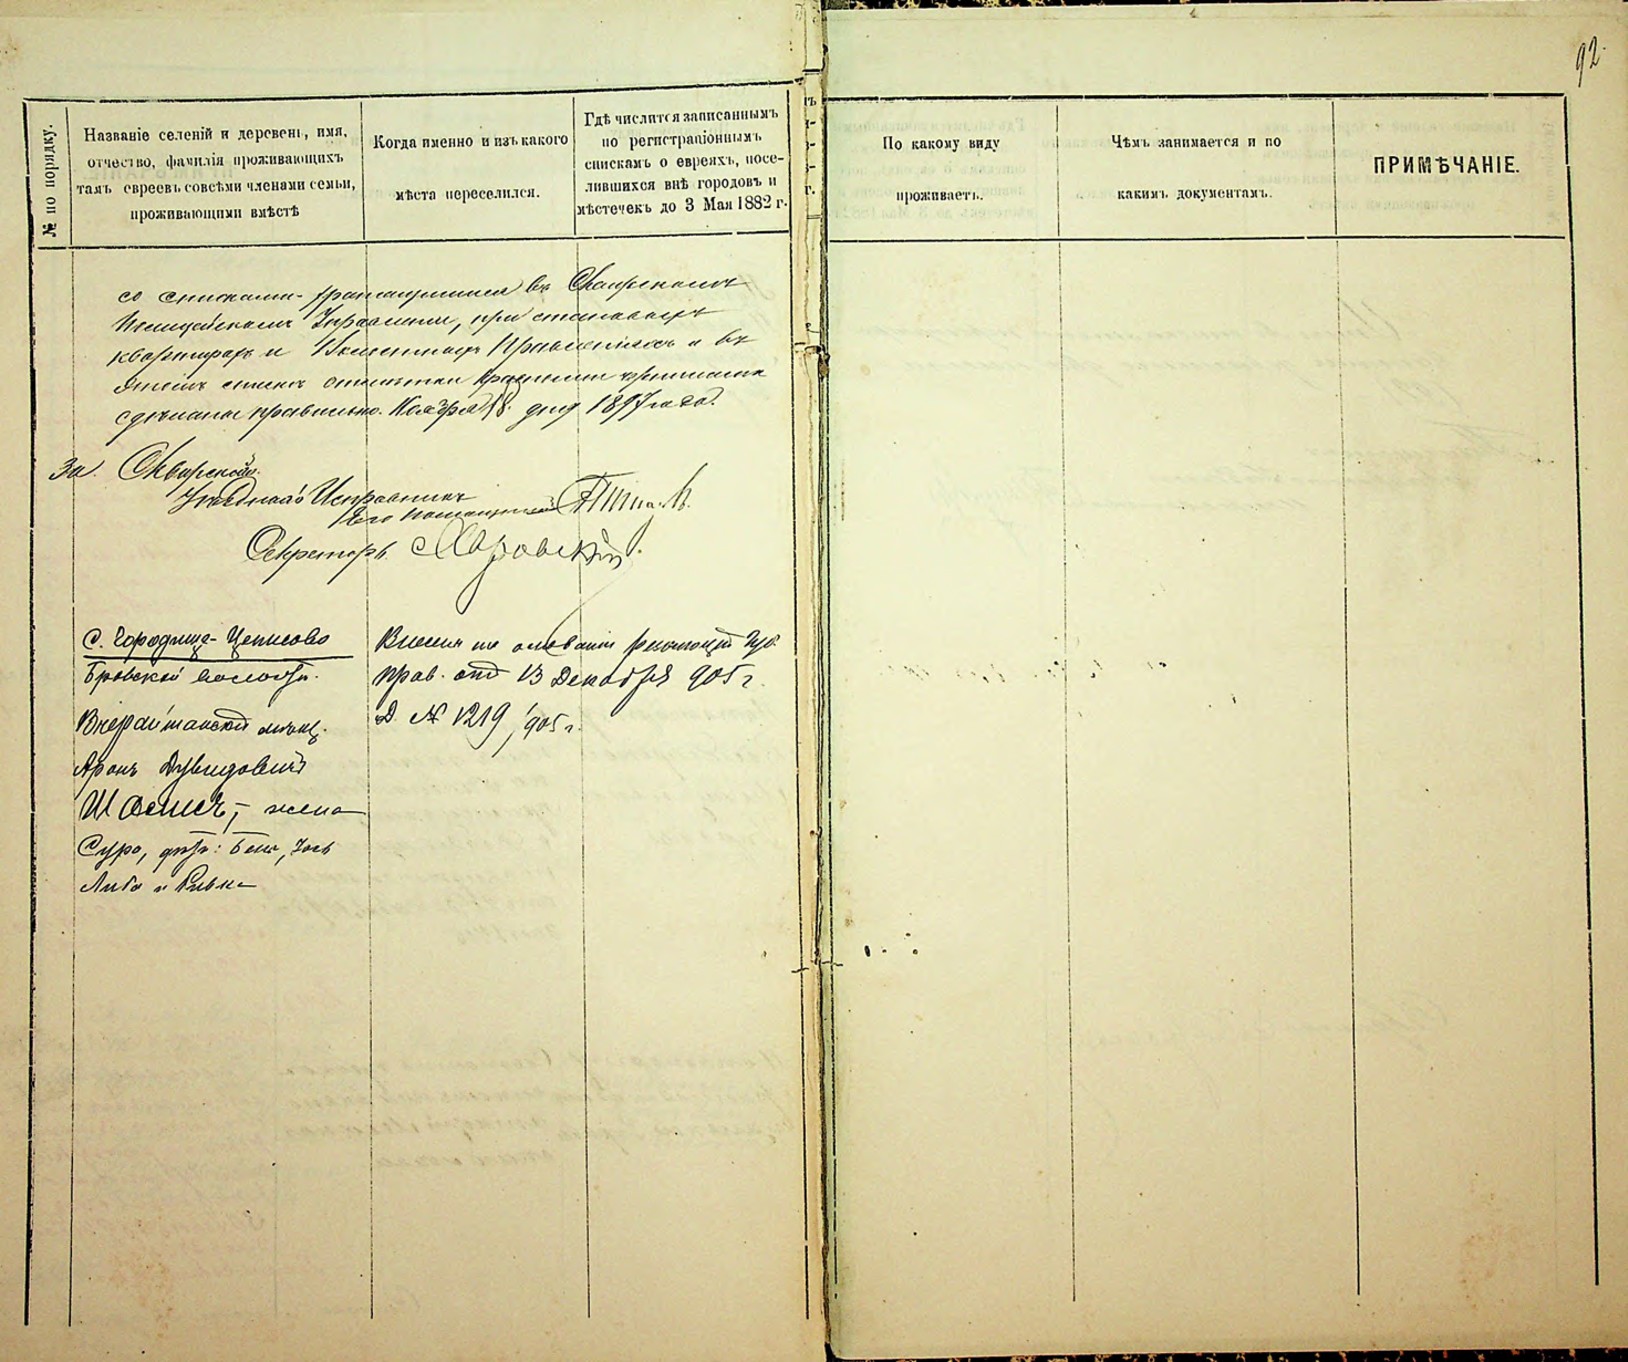 92.
№ по порядку.
Названіе селеній и деревень, имя,
отчество, фамилія проживающихъ
тамъ евреевъ со всѣми членами семьи,
проживающими вмѣстѣ
Когда именно и изъ какого
мѣста переселился.
Гдѣ числится записаннымъ
по регистраціоннымъ
спискамъ о евреяхъ, посе-
лившихся внѣ городовъ и
мѣстечекъ до 3 Мая 1882 г.
По какому виду
проживаетъ.
Чѣмъ занимается и по
какимъ документамъ.
ПРИМѢЧАНІЕ.
со списками хранящимися въ Сквирскомъ
Полицейскомъ Управленіи, при становыхъ
квартирахъ и Волостныхъ Правленіяхъ и въ
этомъ списке отметки красными чернилами
сдѣланы правильно. Ноября 18 дня 1897 года.
За Сквирскаго
Уѣзднаго Исправника
Его Помощникъ
Секретарь
с. Городище-
Бровской волости.
Внесенъ на основаніи резолюціи Губ.
Прав. отъ 13 Декабря 905 г.
Д. № 1219/905 г.
мѣщ.
Аронъ Дувидовичъ
жена
Сура, дѣти:
Либа и Ривка